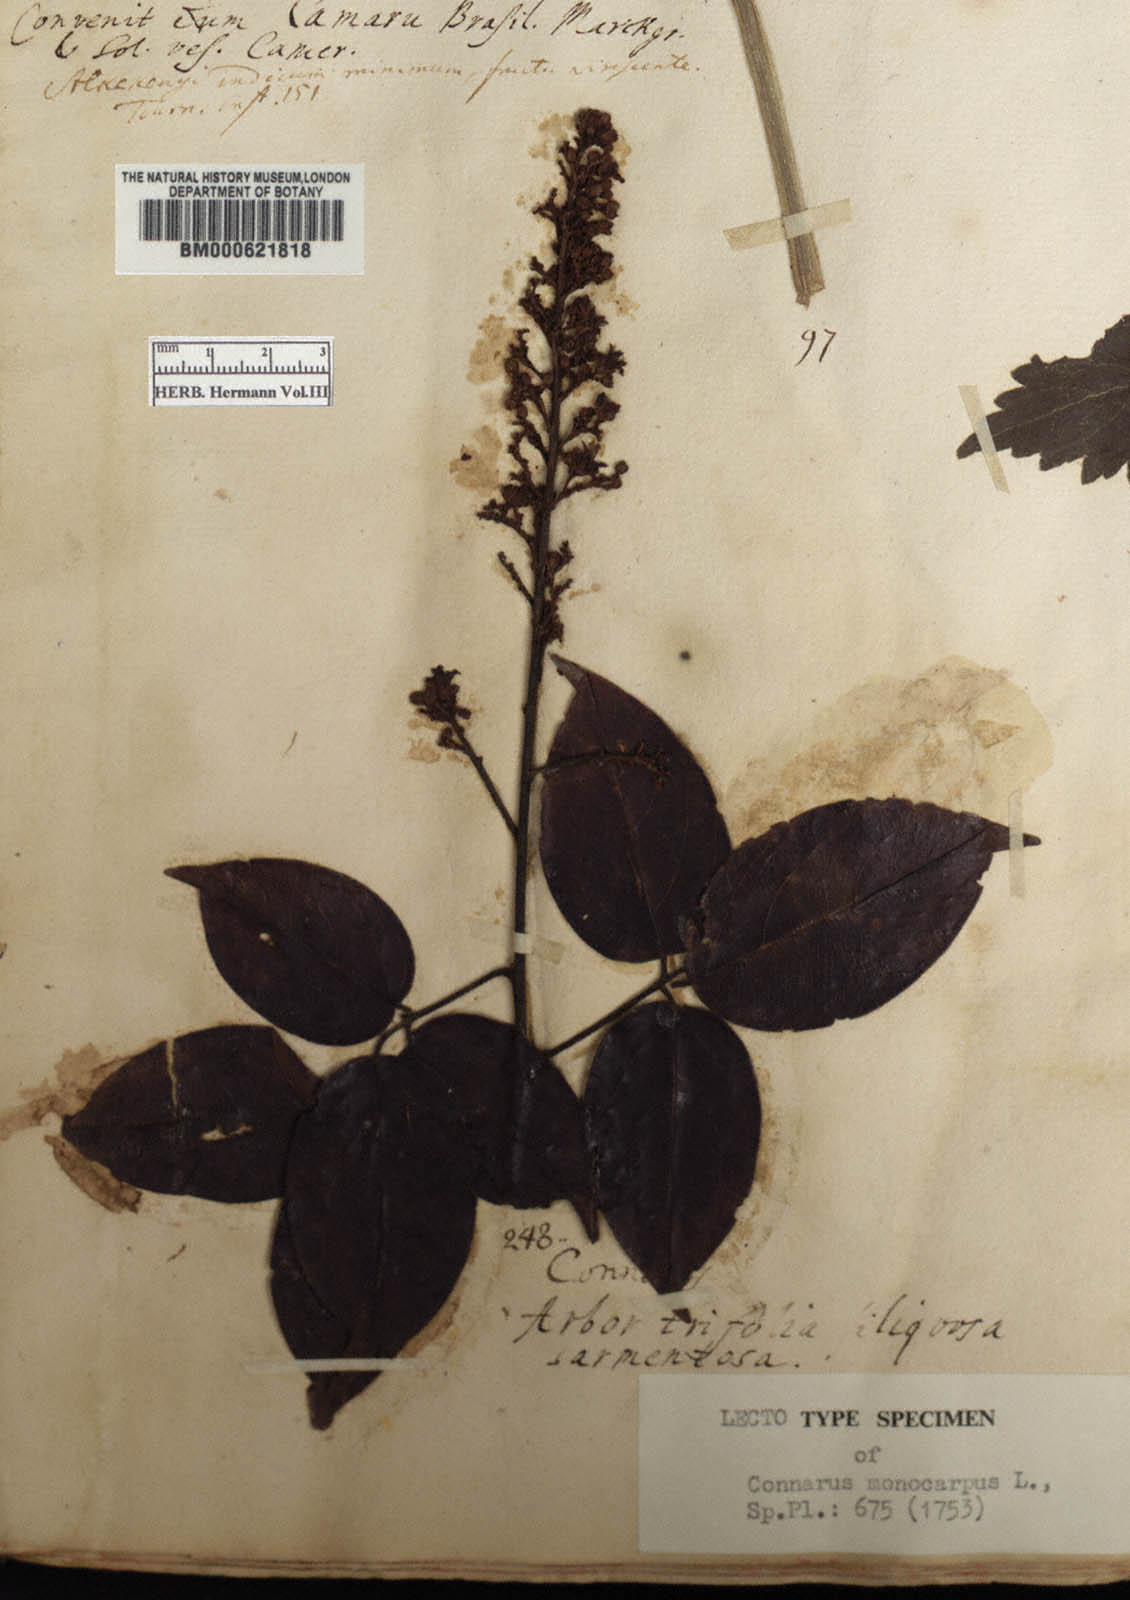 Convenit cum Camaru Brasil. Marckgr.
& Sol. ves. Camer.
Alkekengi Indicum minimum, fructu virescente.
Tourn. Inst. 151
THE NATURAL HISTORY MUSEUM, LONDON
DEPARTMENT OF BOTANY
BM000621818
mm 1 2 3
HERB. Hermann Vol.III
97
248.
Arbor trifolia siliqvosa
sarmentosa.
LECTO TYPE SPECIMEN
of
Connarus monocarpus L.,
Sp.Pl.: 675 (1753)